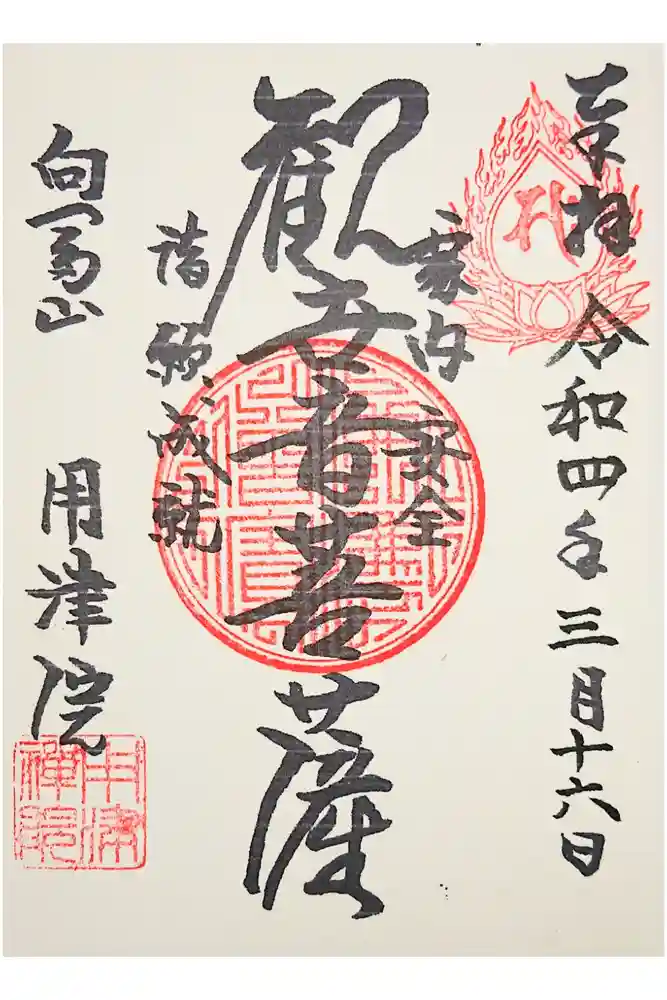 奉拝 令和四年三月十六日
家内安全
観世音菩薩
諸願成就
向冨山 用津院
用津
禅院